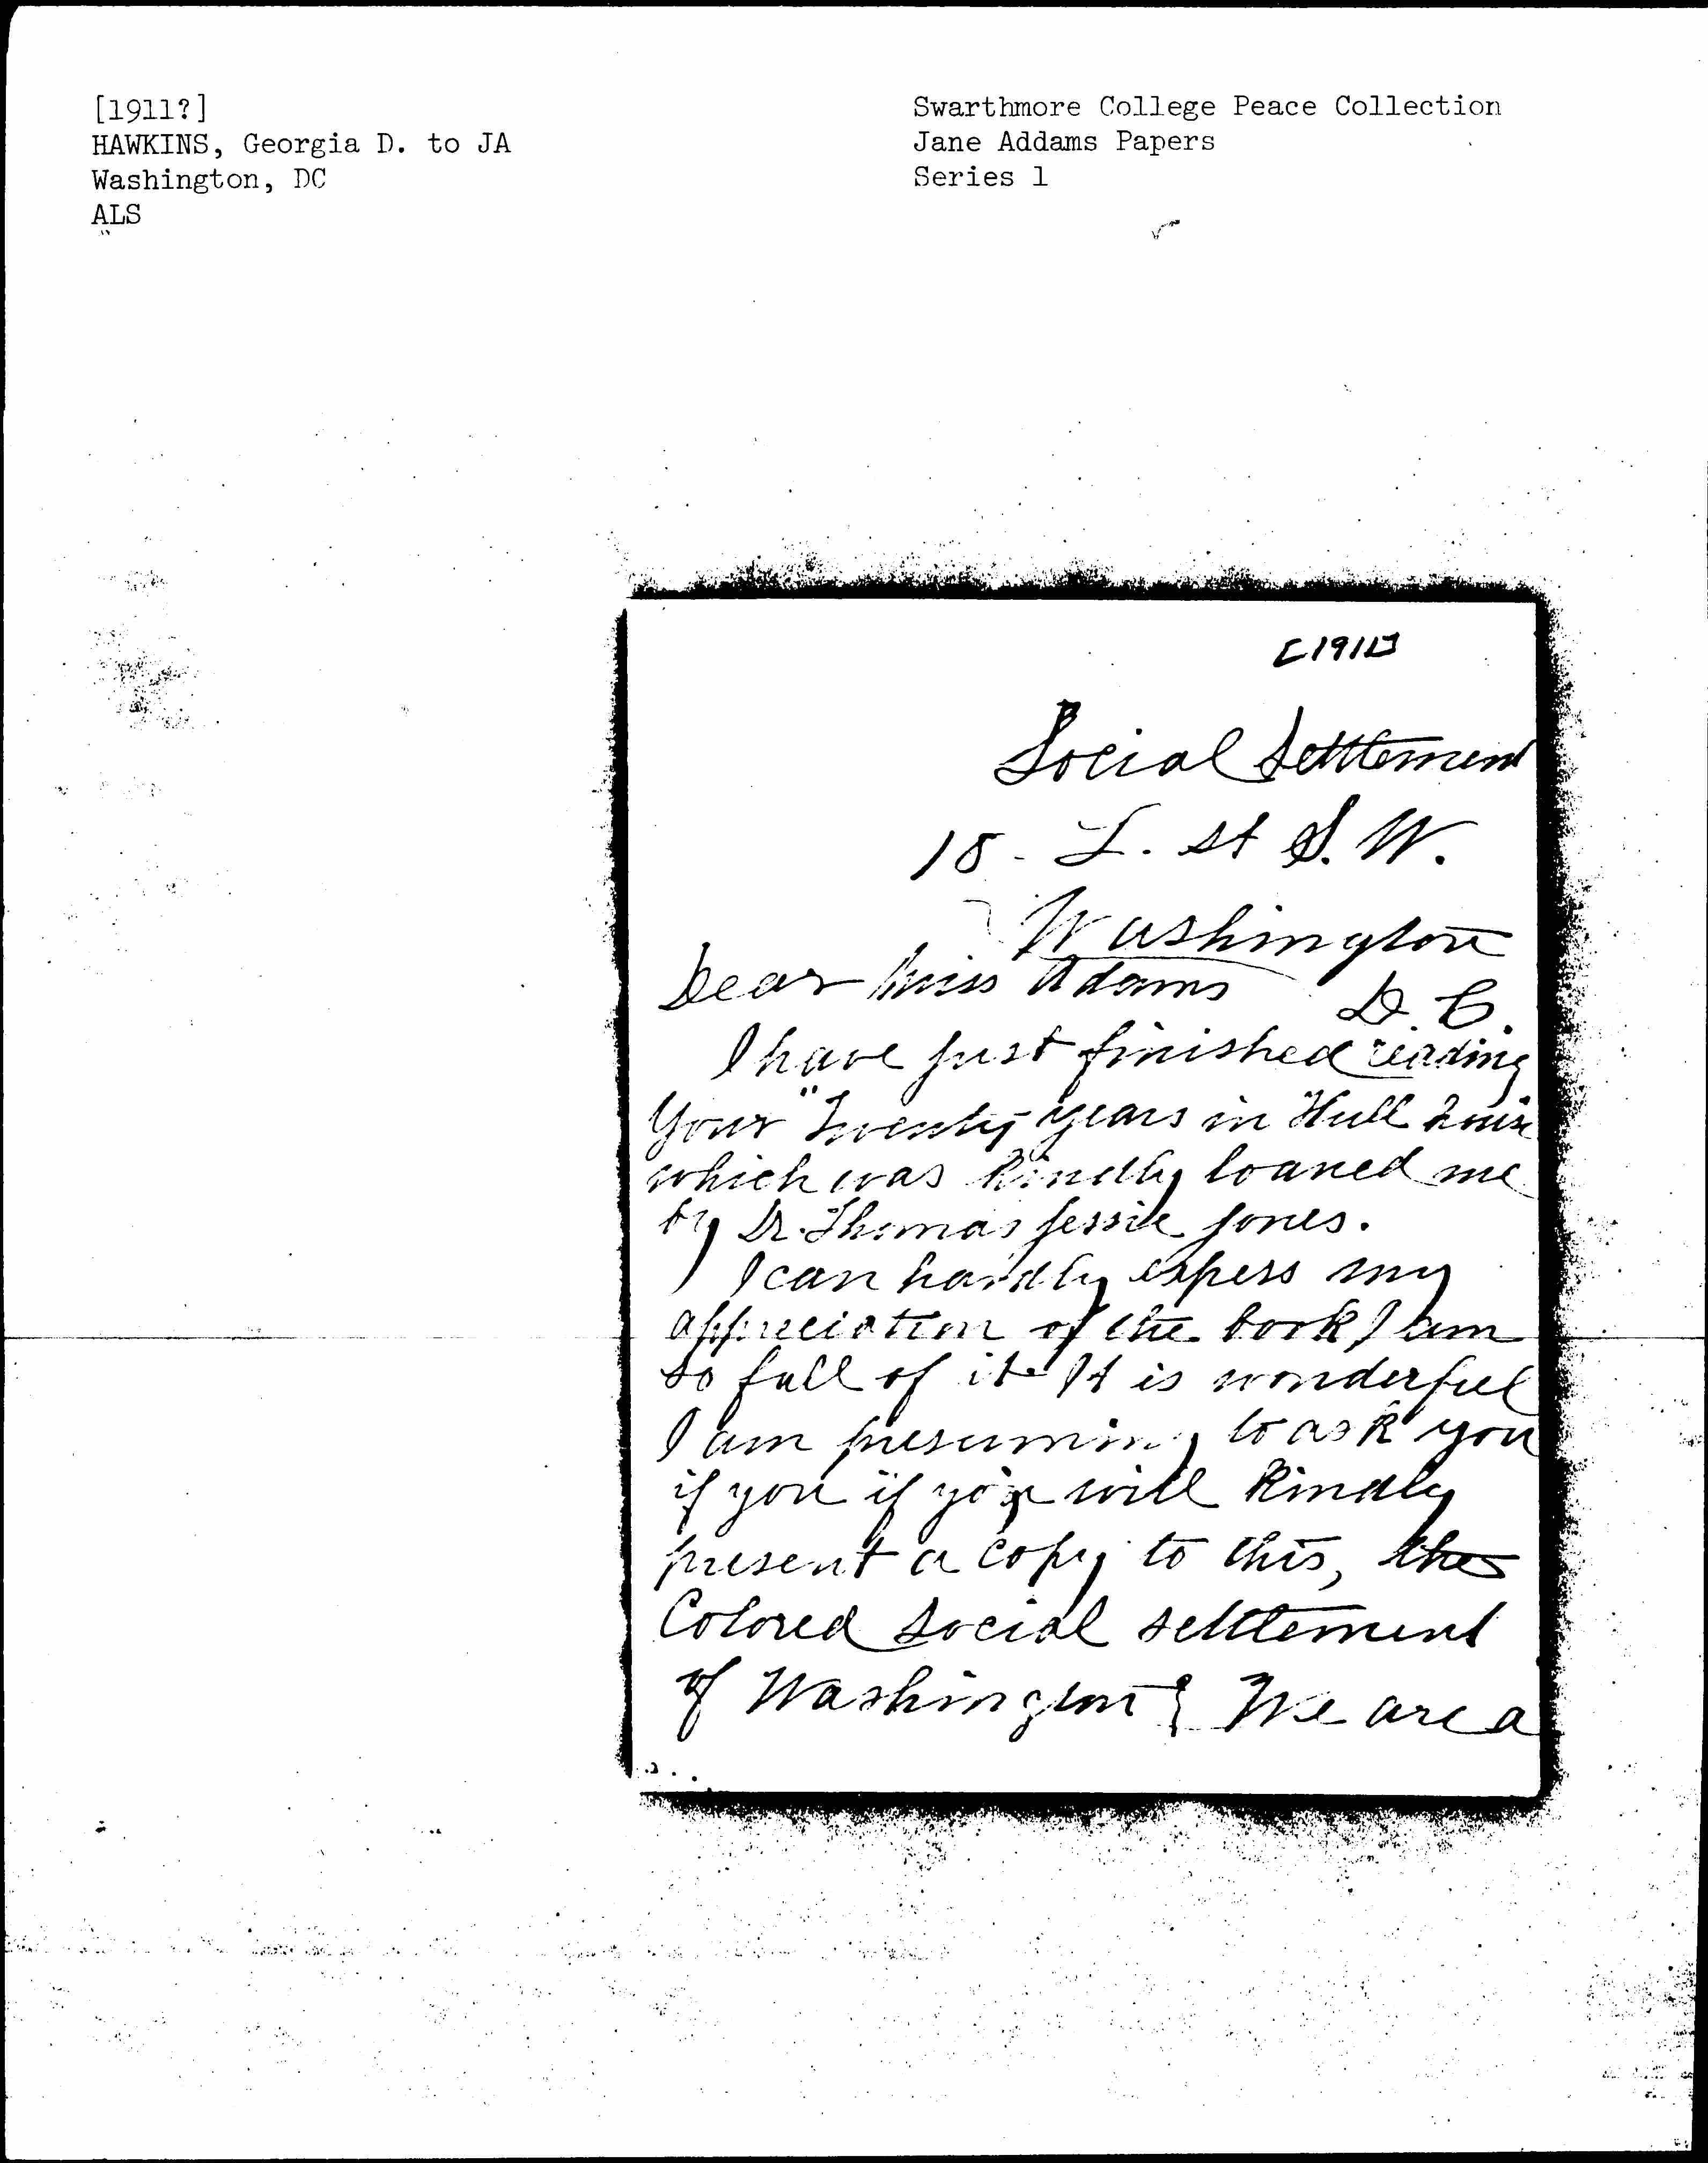 [1911?]
HAWKINS, Georgia D. to JA
Washington, DC
ALS
Swarthmore College Peace Collection
Jane Addams Papers
Series 1
[1911]
Social Settlement
18 - L. st S. W.
Washington
D. C.
Dear Miss Adams
I have just finished reading
Your "Twenty years in Hull House
which was kindly loaned me
by Dr. Thomas Jessie Jones.
I can hardly expess my
appreciation of the book I am
so full of it It is wonderful
I am presuming to ask you
if you if you will kindly
present a copy to this, the
Colored Social settlement
of Washington? We are a